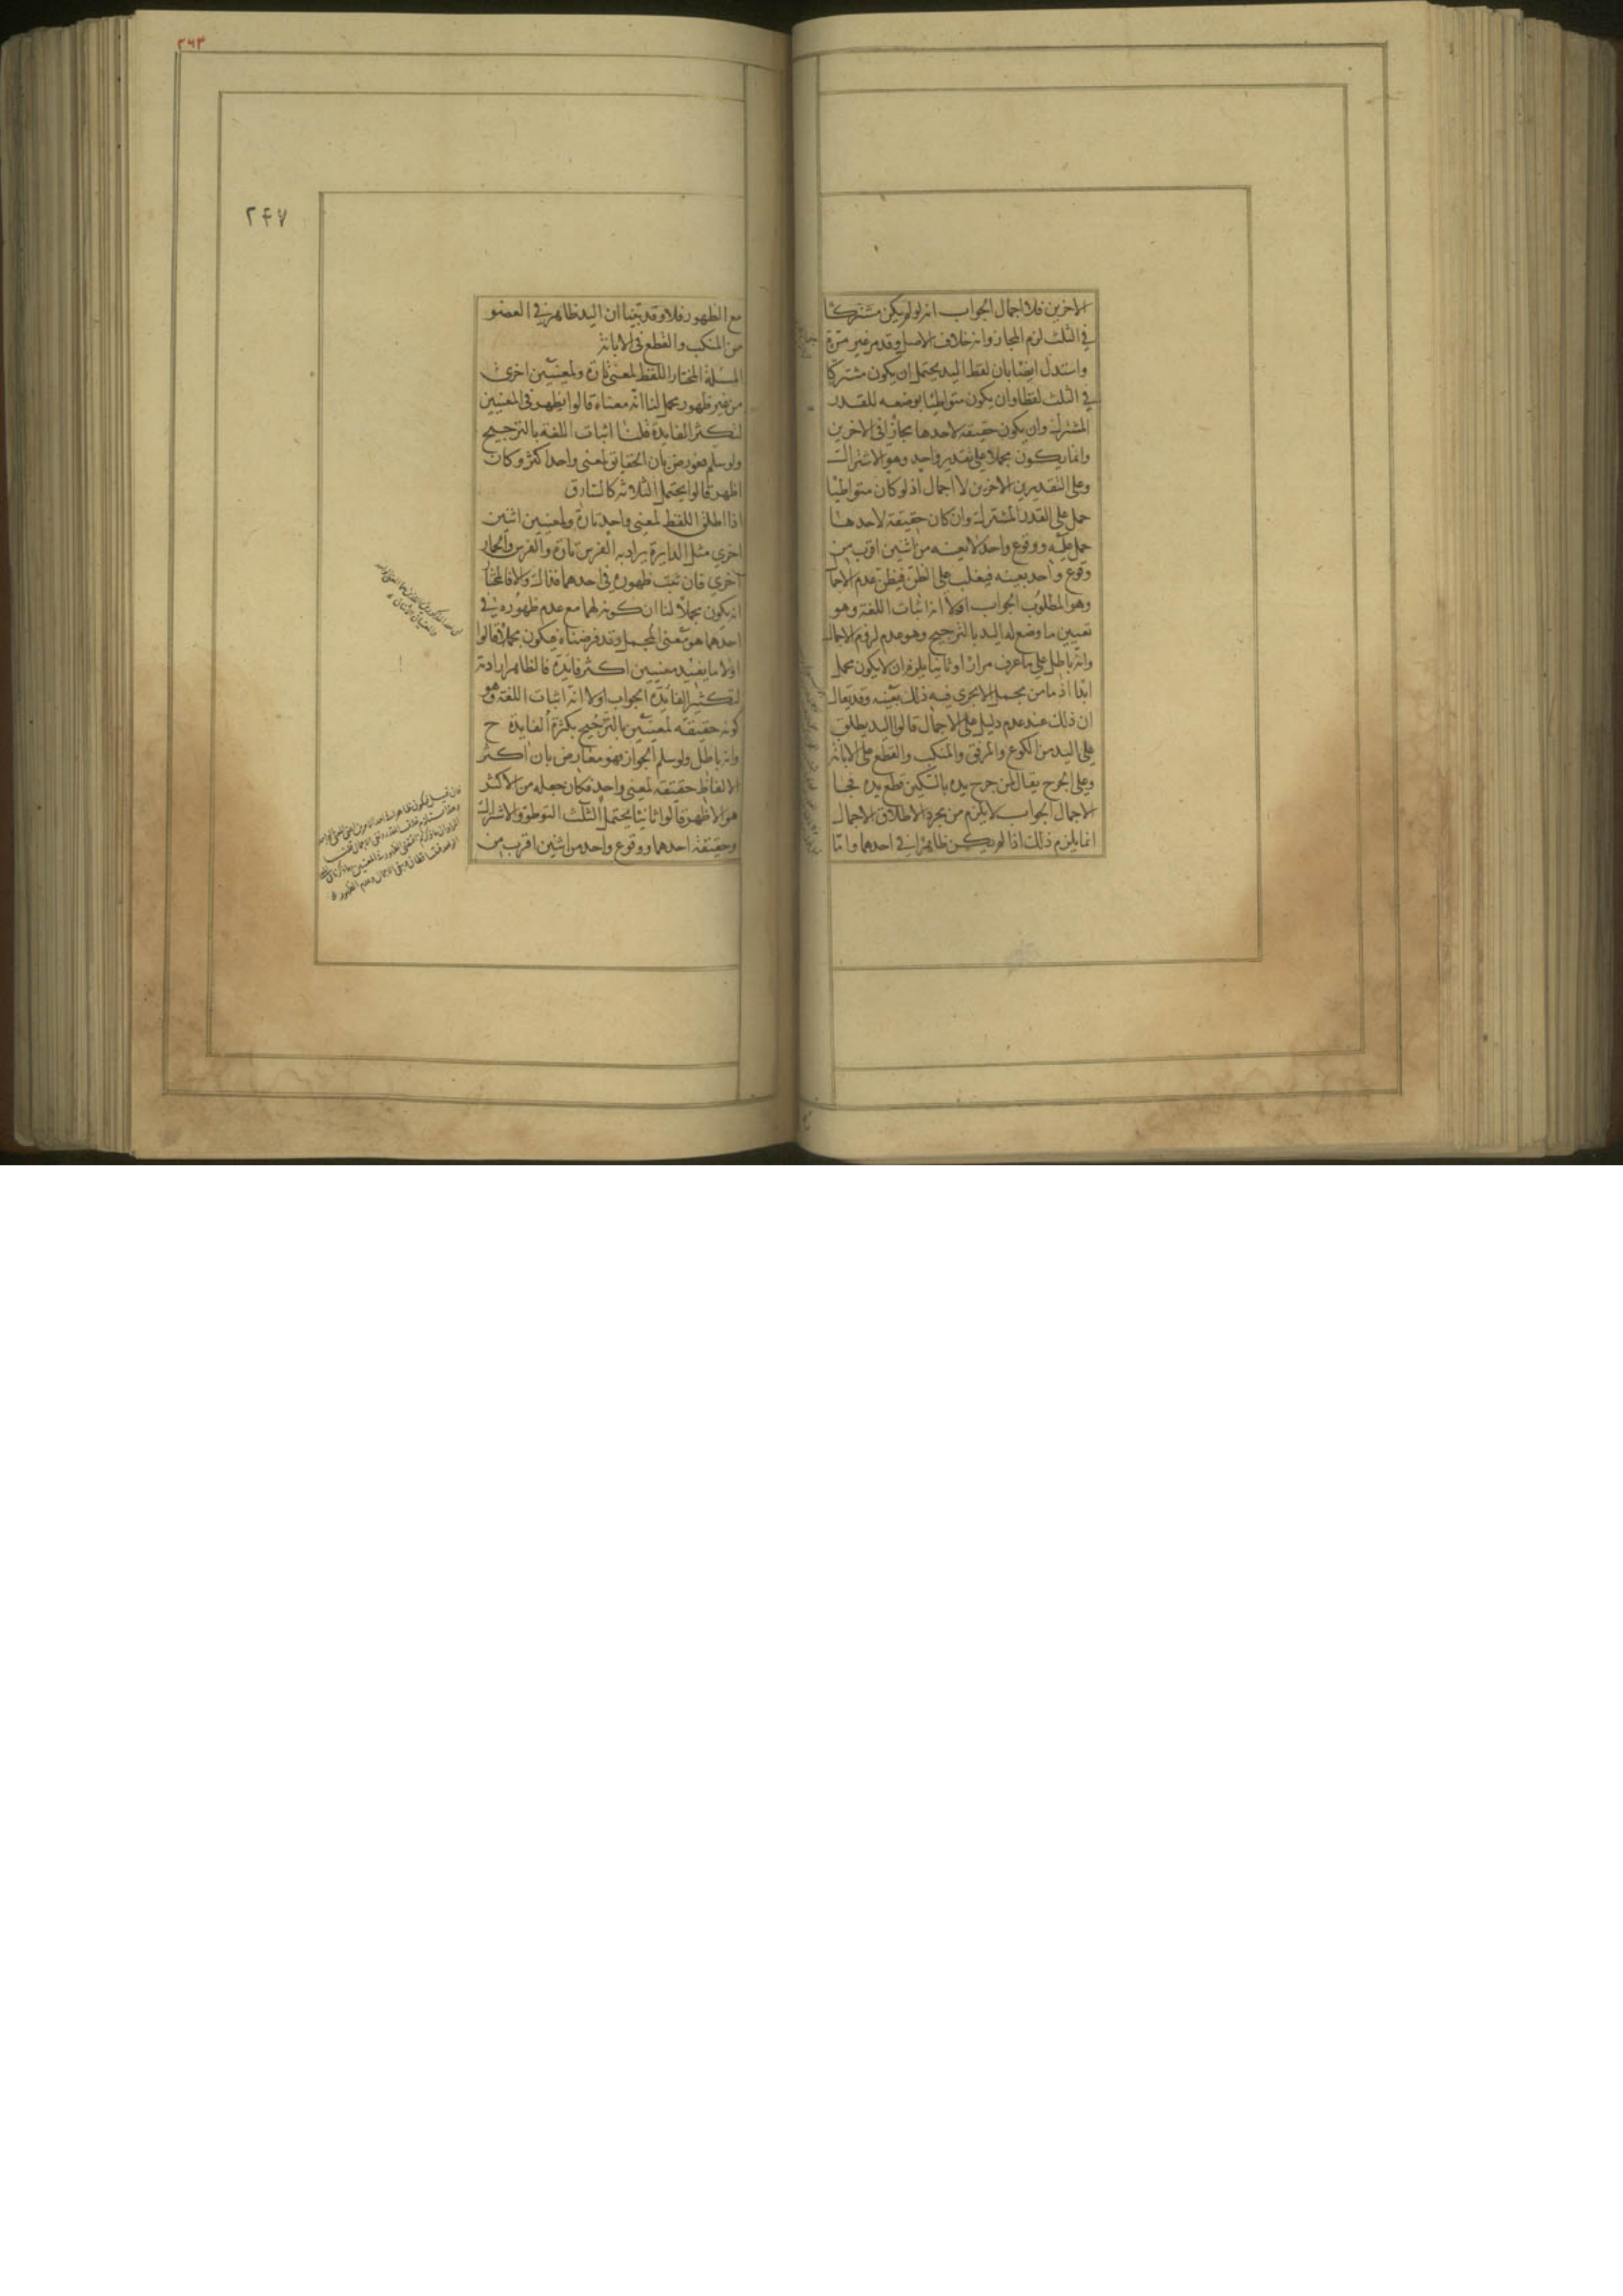 الاخرين فلا اجمال الجواب انه لو لم يكن مشتركا
في الثلث لزم المجاز وانه خلاف الاصل وقد مر غير مرة
واستدل ايضا بان لفظ اليد يحتمل ان يكون مشتركا
في الثلث لفظا وان يكون متواطيا بوضعه للقدر
المشترك وان يكون حقيقة لاحدها مجازا في الاخرين
وانما يكون مجملا على تقدير واحد وهو الاشتراك
وعلى التقديرين الاخرين لا اجمال اذ لو كان متواطيا
حمل على القدر المشترك وان كان حقيقة لاحدها
حمل عليه ووقوع واحد لا بعينه من اثنين اقرب من
وقوع واحد بعينه فيغلب على الظن فيظن عدم الاجما
وهو المطلوب الجواب اولا انه اثبات اللغة وهو
تعيين ما وضع له اليد بالترجيح وهو عدم لزوم الاجمال
وانه باطل على ما عرف مرارا وثانيا يلزم ان لا يكون مجمل
ابدا اذ ما من مجمل الا يجرى فيه ذلك بعينه وقد يقال
ان ذلك عند عدم دليل على الاجمال قالوا اليد يطلق
على اليد من الكوع والمرفق والمنكب والقطع على الابانة
وعلى الجرح يقال لمن جرح يده بالسكين قطع يده فجا
الاجمال الجواب لا يلزم من مجرد الاطلاق الاجمال
انما يلزم ذلك اذا لم يكن ظاهرا في احدهما واما
٢٦٣
٢٤٧
مع الظهور فلا وقد تبينا ان اليد ظاهر في العضو
من المنكب والقطع في الابانة
المسئلة المختار اللفظ لمعنى تارة ولمعنيين اخرى
من غير ظهور مجمل لنا انه معناه قالوا يظهر في المعنيين
لتكثر الفايدة قلنا اثبات اللغة بالترجيح
ولو سلم فعورض بان الحقايق لمعنى واحد اكثر وكان
اظهر قالوا يحتمل الثلاثة كالسارق
اذا اطلق اللفظ لمعنى واحد تارة ولمعنيين اثنين
اخرى مثل الدابة يراد به الفرس تارة والفرس والحمار
اخرى فان ثبت ظهوره في احدهما فذاك والا فالمختار
انه يكون مجملا لنا ان كونه لهما مع عدم ظهوره في
احدهما هو معنى المجمل وقد فرضناه فيكون مجملا قالوا
اولا ما يفيد معنيين اكثر فايدة فالظاهر ارادته
لتكثير الفايدة الجواب اولا انه اثبات اللغة وهو
كونه حقيقة لمعنيين بالترجيح بكثرة الفايدة ح
وانه باطل ولو سلم الجواز فهو معارض بان اكثر
الالفاظ حقيقة لمعنى واحد فكان جعله من الاكثر
هو الاظهر قالوا ثانيا يحتمل الثلث التوطؤ والاشتراك
وحقيقة احدهما ووقوع واحد من اثنين اقرب من